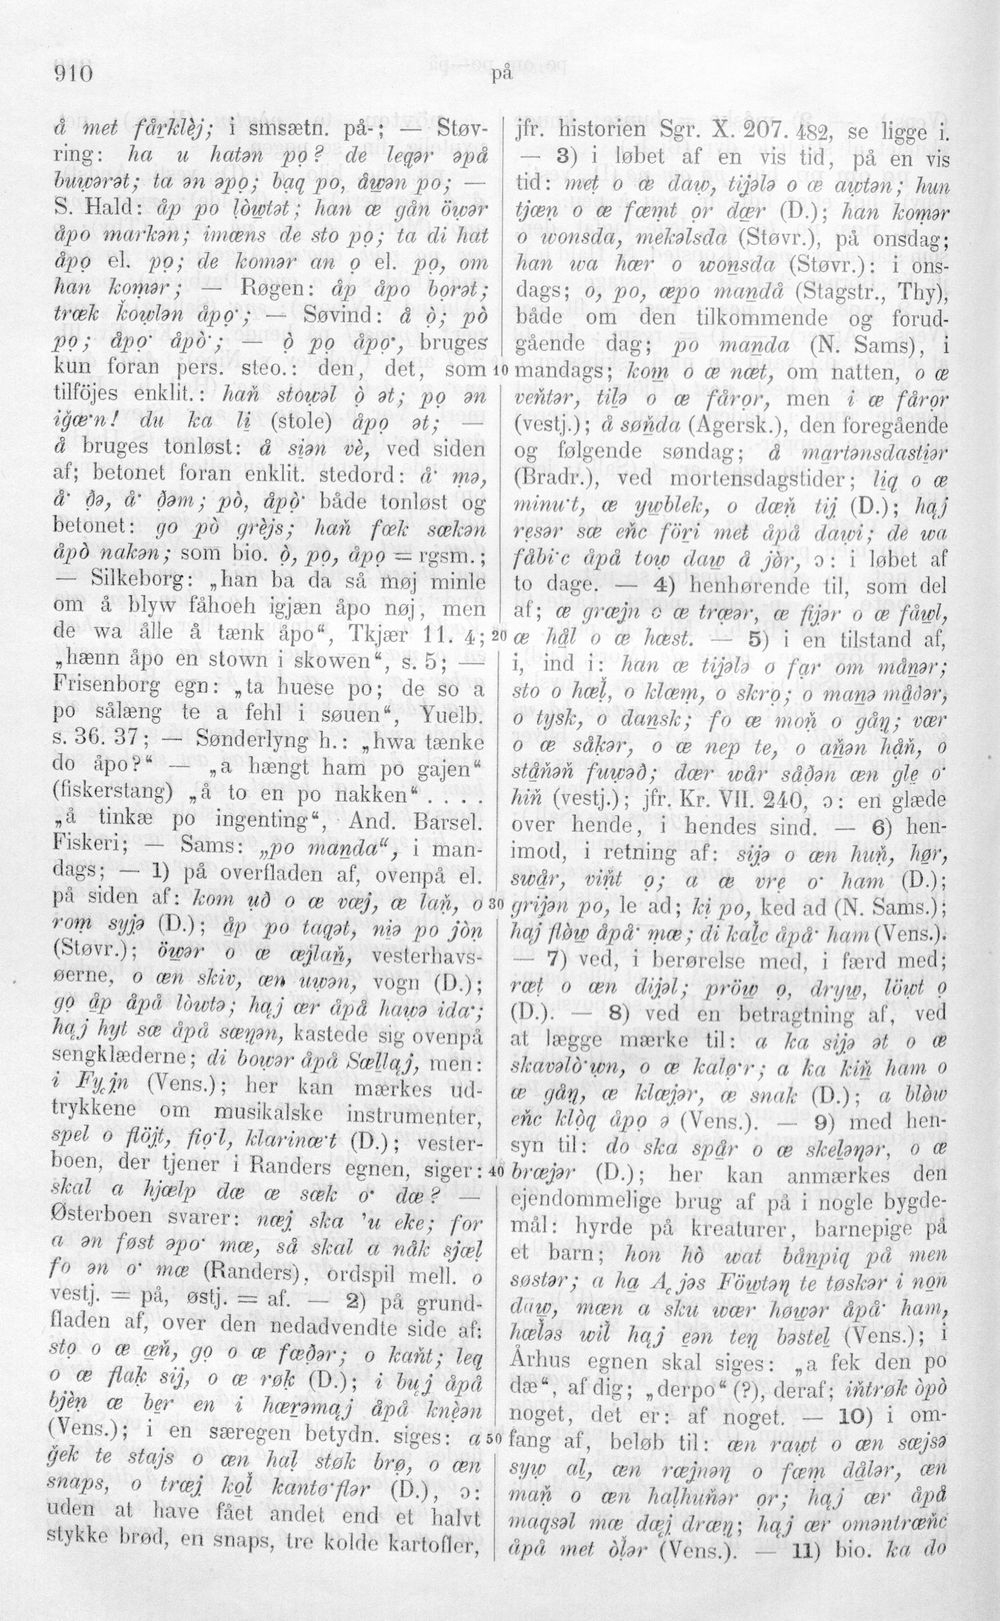 910
på
å met få̱rklèj; i smsætn. på-; — Støv-
ring: ha u hatən po̩? de leqər əpå
buwərət; ta ən əpo̩; ba̩q po, åwən po; —
S. Hald: åp po lòwtət; han œ gån öwər
åpo markən; imœns de sto po̩; ta di hat
åpo̩ el. po̩; de komər an o̩ el. po̩, om
han komər; — Røgen: åp åpo borət;
træk kowlən åpo̩·; — Søvind: å ò; pò
po̩; åpo̩· åpò·; — ò̩ po̩ åpo̩·, bruges
kun foran pers. steo.: den, det, som
tilföjes enklit.: hań stowəl o̩ ət; po̩ ən
iğœ·n! du ka li̩ (stole) åpo̩ ət; —
å bruges tonløst: å siən vè, ved siden
af; betonet foran enklit. stedord: å· mə,
å· ðə, å· ðəm; pò, åpò· både tonløst og
betonet: go pò grèjs; hań fœk sœkən
åpò nakən; som bio. ò̩, po̩, åpo̩ = rgsm.;
— Silkeborg: „han ba da så møj minle
om å blyw fåhoeh igjæn åpo nøj, men
de wa ålle å tænk åpo“, Tkjær 11. 4;
„hænn åpo en stown i skowen“, s. 5; —
Frisenborg egn: „ta huese po; de so a
po sålæng te a fehl i søuen“, Yuelb.
s. 36. 37; — Sønderlyng h.: „hwa tænke
do åpo?“ — „a hængt ham po gajen“
(fiskerstang) „å to en po nakken“ . . . .
„å tinkæ po ingenting“, And. Barsel.
Fiskeri; — Sams: „po manda“, i man-
dags; — 1) på overfladen af, ovenpå el.
på siden af: kom uð o œ væj, œ lań, o
rom syjə (D.); åp po taqət, niə po jòn
(Støvr.); öwər o œ œjlań, vesterhavs-
øerne, o œn skiv, œn uwən, vogn (D.);
go åp åpå lòwtə; haj œr åpå hawə ida·;
haj hyt sœ åpå sœŋən, kastede sig ovenpå
sengklæderne; di bowər åpå Sœllaj, men:
i Fyjn (Vens.); her kan mærkes ud-
trykkene om musikalske instrumenter,
spel o flöjt, fio̩·l, klarinœ·t (D.); vester-
boen, der tjener i Randers egnen, siger:
skal a hjœlp dœ œ sœk o· dœ? —
Østerboen svarer: nœj ska 'u eke; for
a ən føst əpo· mœ, så skal a nåk sjœl
fo ən o· mœ (Randers), ordspil mell. o
vestj. = på, østj. = af. — 2) på grund-
fladen af, over den nedadvendte side af:
sto̩ o œ œń, go̩ o œ fœðər; o kańt; leq
o œ flak sij, o œ røk (D.); i buj åpå
bjèn œ ber en i hœrəmaj åpå knèən
(Vens.); i en særegen betydn. siges: a
ğek te stajs o œn hal støk brø, o œn
snaps, o træj kol kantø·flər (D.), ɔ:
uden at have fået andet end et halvt
stykke brød, en snaps, tre kolde kartofler,
jfr. historien Sgr. X. 207. 482, se ligge i.
— 3) i løbet af en vis tid, på en vis
tid: met o œ daw, tijələ o œ awtən; hun
tjœn o œ fœmt or dœr (D.); han komər
o wonsda, mekəlsda (Støvr.), på onsdag;
han wa hœr o wonsda (Støvr.): i ons-
dags; o, po, œpo mandå (Stagstr., Thy),
både om den tilkommende og forud-
gående dag; po manda (N. Sams), i
10 mandags; kom o œ nœt, om natten, o œ
veńtər, tilə o œ fåror, men i œ fåror
(vestj.); å søńda (Agersk.), den foregående
og følgende søndag; å martənsdastiər
(Bradr.), ved mortensdagstider; liq o œ
minu·t, œ ywblek, o dœń tij (D.); haj
resər sœ eńc föri met åpå dawi; de wa
fåbi·c åpå tow daw å jòr, ɔ: i løbet af
to dage. — 4) henhørende til, som del
af; œ grœjn o œ trœər, œ fijər o œ fåwl,
20 œ hål o œ hœst. — 5) i en tilstand af,
i, ind i: han œ tijələ o far om månər;
sto o hœl, o klœm, o skro; o manə måðər,
o tysk, o dansk; fo œ moń o gåŋ; vœr
o œ såkər, o œ nep te, o ańən håń, o
ståńəń fuwəð; dœr wår såðən œn gle o·
hiń (vestj.); jfr. Kr. VII. 240, ɔ: en glæde
over hende, i hendes sind. — 6) hen-
imod, i retning af: sijə o œn huń, hør,
swår, vińt o̩; a œ vre o· ham (D.);
30 grijən po, le ad; ki po, ked ad (N. Sams.);
haj flòw åpå· mœ; di kalc åpå· ham (Vens.).
— 7) ved, i berørelse med, i færd med;
rœt o œn dijəl; pröw o̩, dryw, löwt o̩
(D.). — 8) ved en betragtning af, ved
at lægge mærke til: a ka sijə ət o œ
skavəlò·wn, o œ kalø·r; a ka kiń ham o
œ gåŋ, œ klœjər, œ snak (D.); a blòw
eńc klòq åpo̩ ə (Vens.). — 9) med hen-
syn til: do ska spår o œ skeləŋər, o œ
40 brœjər (D.); her kan anmærkes den
ejendommelige brug af på i nogle bygde-
mål: hyrde på kreaturer, barnepige på
et barn; hon hò wat bånpiq på men
søstər; a ha A jəs Föwtəŋ te tøskər i non
daw, mœn a sku wœr høwər åpå· ham,
hœləs wil haj eən teŋ bəstel (Vens.); i
Århus egnen skal siges: „a fek den po
dæ“, af dig; „derpo“ (?), deraf; ińtrøk òpò
noget, det er: af noget. — 10) i om-
50 fang af, beløb til: œn rawt o œn sœjsə
syw al, œn rœjnəŋ o fœm dålər, œn
mań o œn halhuńər or; haj œr åpå
maqsəl mœ dœj drœŋ; haj œr oməntrœńc
åpå met òlər (Vens.). — 11) bio. ka do